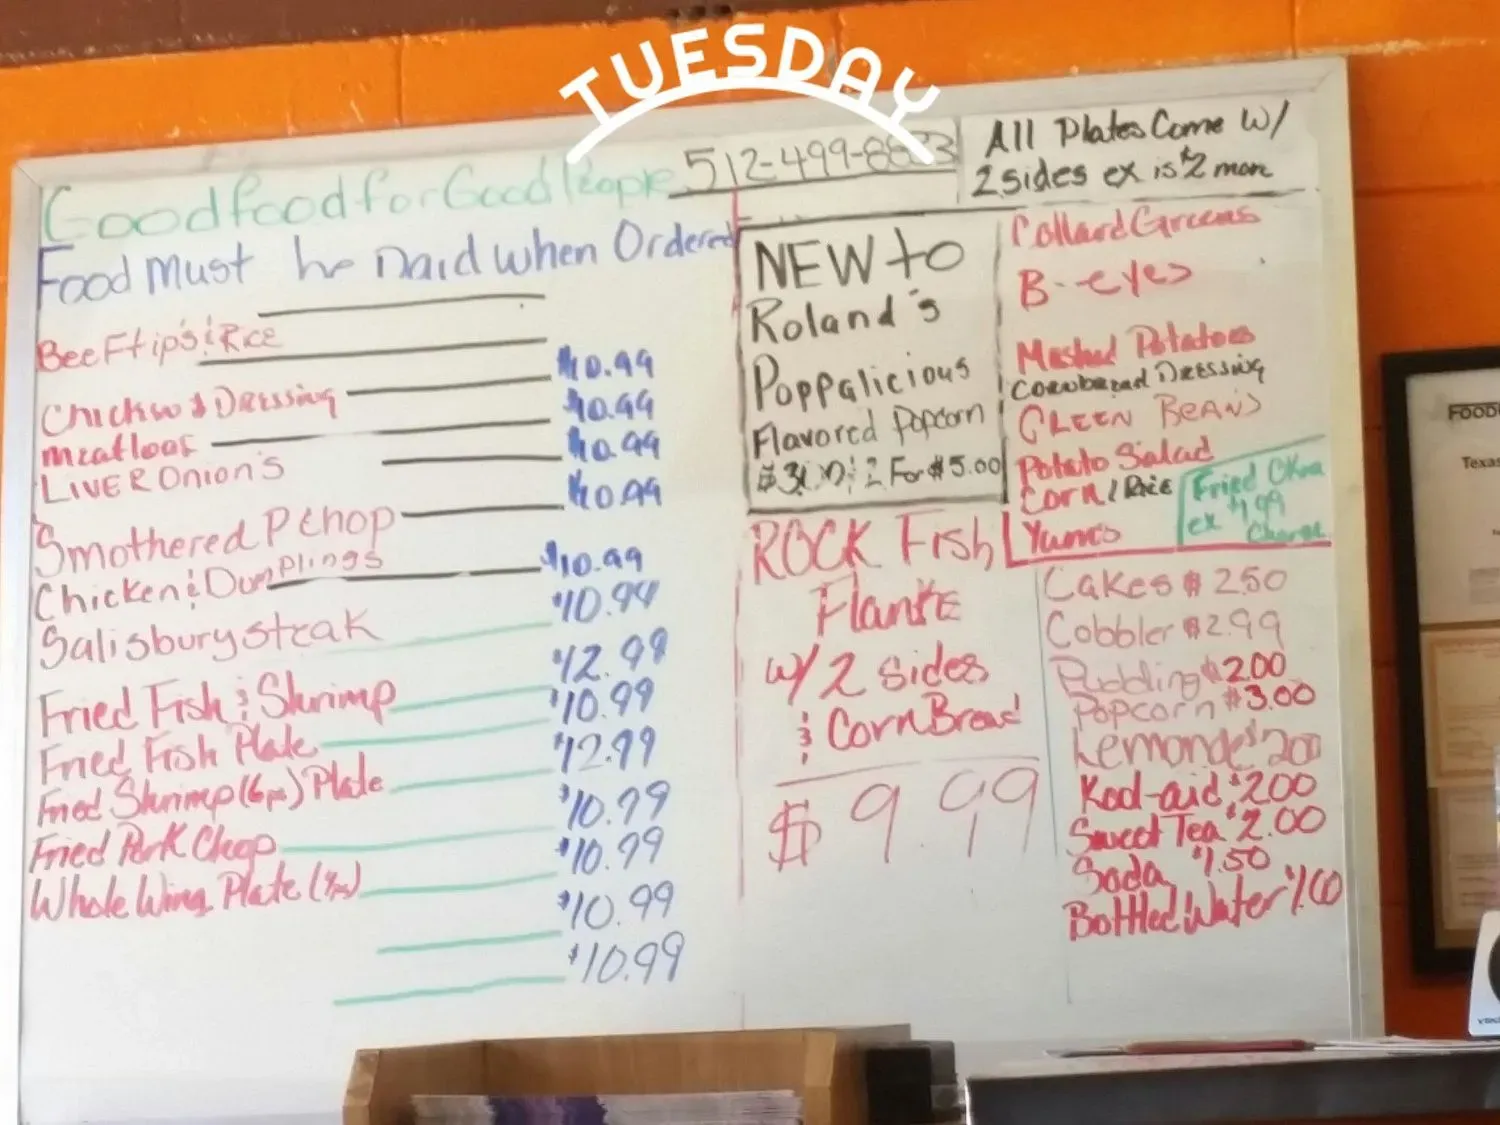 TUESDAY
Good food for Good People 512-499-8
All Plates Come W/
2 sides ex is $2 more
Food Must be paid when Ordered
Beef tip's & Rice
Chicken & Dressing
meatloaf
LIVER Onion's
Smothered P Chop
Chicken & Dumplings
Salisbury steak
Fried Fish & Shrimp
Fried Fish Plate
Fried Shrimp (6pc) Plate
Fried Pork Chop
Whole Wing Plate
$10.99
$10.99
$10.99
$10.99
$10.99
$10.99
$12.99
$10.99
$12.99
$10.99
$10.99
$10.99
$10.99
NEW to
Roland's
Poppalicious
Flavored Popcorn
2 For $5.00
ROCK Fish
w/ 2 sides
& Corn Bread
$9.99
Collard Greens
B--eyes
Mashed Potatoes
Cornbread Dressing
GREEN BEANS
Potato Salad
Corn / Rice
Yams
Fried Okra
ex $1.99
Charge
Cakes $2.50
Cobbler $2.99
Pudding $2.00
Popcorn $3.00
Lemonde $200
Kool-aid $200
Sweet Tea $2.00
Soda $1.50
Bottled Water $1.00
FOOD
Texas